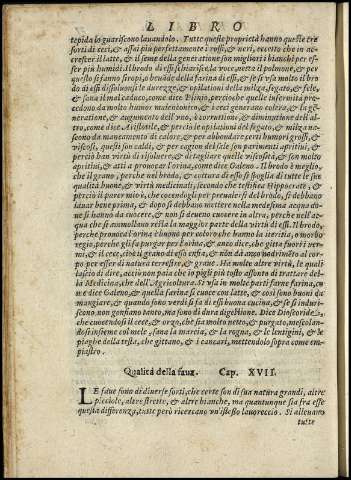 LIBRO
tepida lo guariscono lauandolo. Tutte queste proprietà hanno queste tre
sorti di ceci, & assai più perfettamente i rossi, & neri, eccetto che in ac-
crescer il latte, & il seme della generatione son migliori i bianchi per es-
ser più humidi. Il brodo di essi schiarisce la voce, netta il polmone, & per
questo si fanno siropi, o beuāde della farina di essi, & se si vsa molto il bro-
do di essi dissoluonsi le durezze, & opilationi della milza, fegato, & fele,
& sana il mal caduco, come dice Plinio, percioche quelle infermità pro-
cedono da molto humor malenconico, & i ceci generano colera, & la ge-
neratione, & augumento dell' vno, è corruttione, & diminutione dell'al-
tro, come dice Aristotile, & perciò l'opilationi del fegato, & milza na-
scono da mancamento di calore, & per abbondanza di humori grossi, &
viscosi, questi son caldi, & per cagion del sale son parimenti apritiui, &
perciò han virtù di risoluere, & detagliare quelle viscosità, & son molto
apritiui, & atti a prouocar l'orina, come dice Galeno. Il brodo è meglio,
che il grano, perche nel brodo, & cottura di esso si spoglia di tutte le sue
qualità buone, & virtù medicinali, secondo che testifica Hippocrate, &
perciò il parer mio è, che cocendogli per prenderli del brodo, si debbano
lauar bene prima, & dopò si debbano mettere nella medesima acqua do-
ue si hanno da cuocere, & non si deueno cuocere in altra, perche nell'ac-
qua che si ammollano resta la maggior parte della virtù di essi. Il brodo,
perche fà far orina è buono per coloro, che hanno la iteritia, o morbo
regio, perche gli fa purgar per l'orina, & anco dice, che gitta fuori i ver-
mi, & il ceci, cioè il grano di essa ensia, & non dà troppo nodrimēto al cor-
po per esser di natura terrestre, & graue. Ha molte altre virtù, le quali
lascio di dire, acciò non paia che io pigli più tosto assonto di trattare del-
la Medicina, che dell'Agricoltura. Si vsa in molte parti farne farina, co
me dice Galeno, & quella farina si cuoce con latte, & così son buoni da
mangiare, & quando sono verdi si fa di essi buona cucina, & se si induri-
scono non gonfiano tanto, ma sono di dura digestione. Dice Dioscoride,
che cuocendosi il cece, & orzo, che sia molto netto, & purgato, mescolan-
dosi insieme col mele, sana la marcia, & la rogna, & le lentigini, & le
piaghe della testa, che gittano, & i cancari, mettendolo sopra come em-
piastro.
Qualità della faua. Cap. XVII.
LE faue sono di diuerse sorti, che certe son di sua natura grandi, altre
picciole, altre strette, & altre bianche, ma quantunque sia fra esse
questa differenza, tutte però ricercano vn'istesso lauoreccio. Si alleuano
tutte